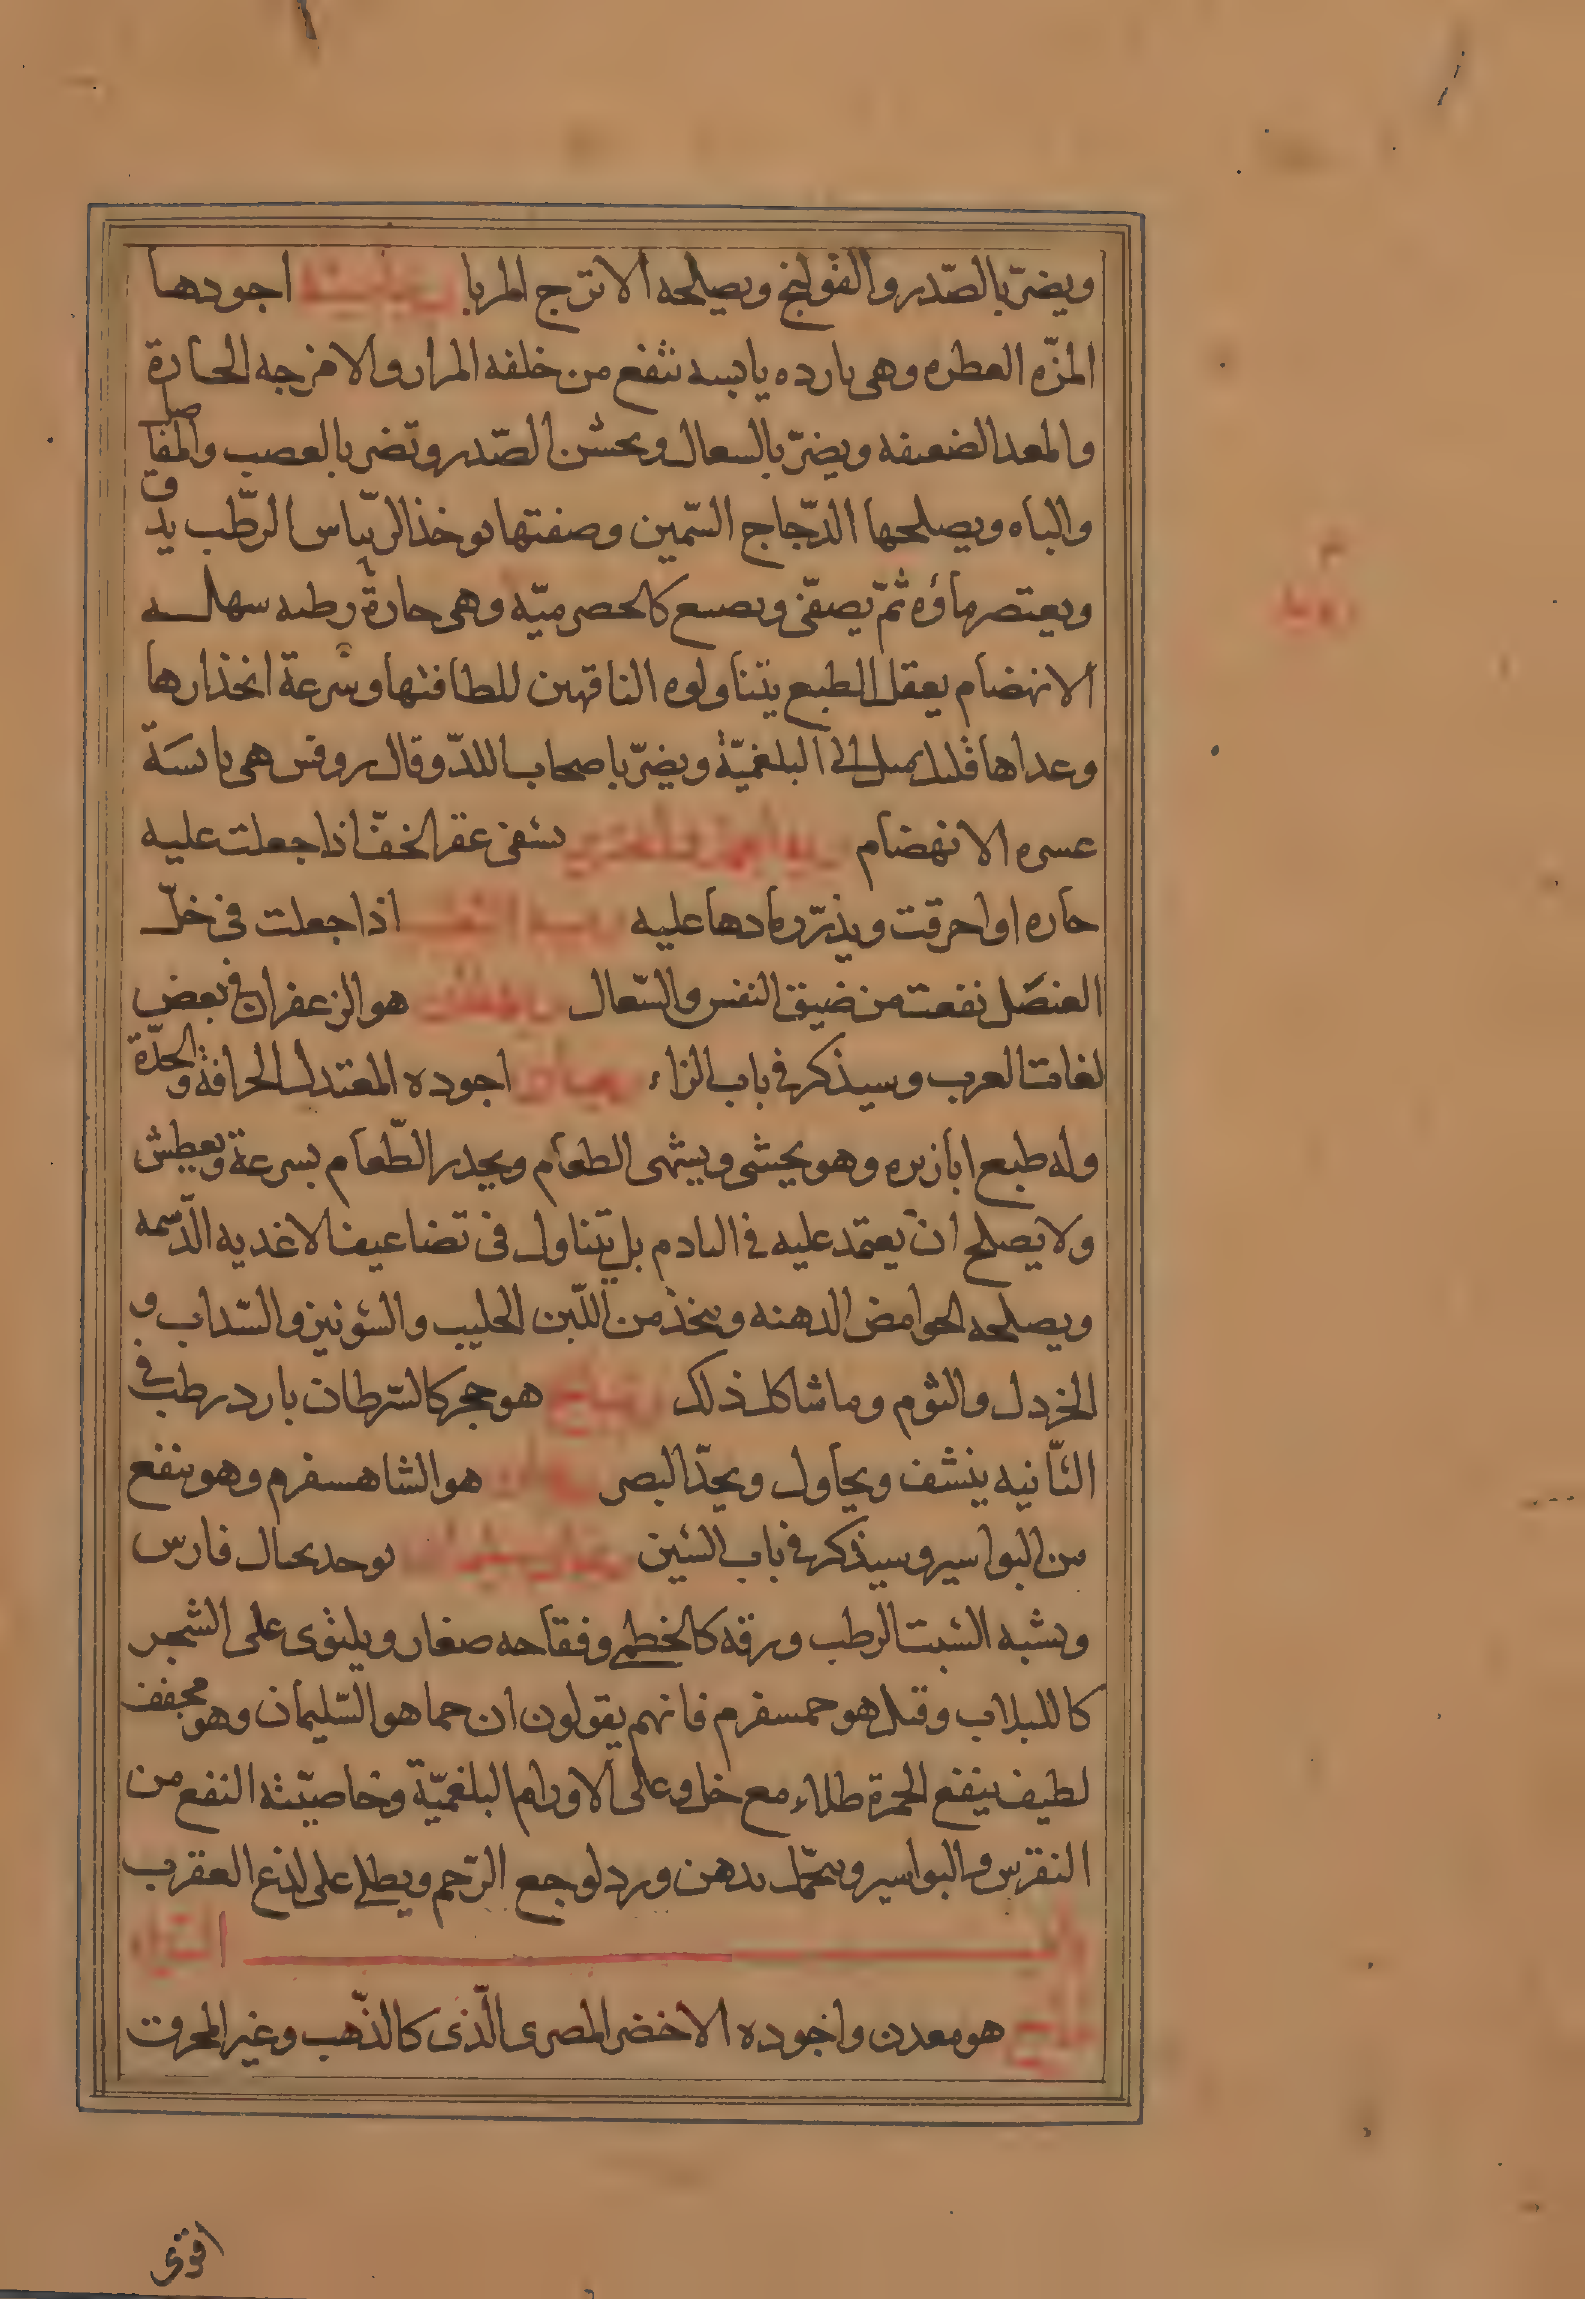 ويضرّ بالصّدر والقولنج ويصلحه الاترج المربا اجودها
المزّه العطره وهى بارده يابسه تنفع من خلفه المرار والامزجه الحارة
والمعد الضعيفه ويضرّ بالسعال ويخشن الصّدر وتضر بالعصب والمفاصل
والباه ويصلحها الدّجاج السّمين وصفتها يوخذ الريباس الرّطب يدق
ويعتصر ماؤه ثمّ يصفّى ويصنع كالحصرميّه وهى حارة رطبه سهله
الانهضام يعقل الطبع يتناولوه الناقهين للطافتها وسرعة انحذارها
وعداها قليل يميل الى البلغميّة ويضرّ باصحاب البلد وقال روفس هى يابسَة
عسره الانهضام تشفى عقر الخفّ اذا جعلت عليه
حاره او احرقت ويذرّ رمادها عليه اذا جعلت فى خلّ
العنصَل نفعت من ضيق النفس والسّعال هو الزعفران فى بعض
لغات العرب وسيذكر فى باب الزاء اجوده المعتدل الحرافة والحدّة
وله طبع ابازيره وهو يحشى ويشهى الطعام ويحدر الطّعام بسرعة ويعطش
ولا يصلح ان يعتمد عليه فى التادم بل يتناول فى تضاعيف الاغديه الدّسمه
ويصلحه الحوامض الدهنه ويتخذ من اللّبن الحليب والشونيز والسّداب و
الخردل والثوم وما شاكل ذلك هو حجر كالسّرطان بارد رطب فى
الثّانيه ينشف ويحاول ويحدّ البصر ريحان هو الشاهسفرم وهو ينفع
من البواسير وسيذكر فى باب الشين ريحان سليمان يوحد بجبال فارس
ويشبه الشبت الرطب ورقه كالخطمى وفقاحه صغار ويلتوى على الشجر
كاللبلاب وقيل هو حمسفرم فانهم يقولون ان حما هو السّليمان وهو مجفف
لطيف ينفع الحمرة طلاء مع خل وعلى الاورام البلغميّة وخاصيّته النفع من
النقرس والبواسير ويتحمّل بدهن ورد لوجع الرّحم ويطلى على لذع العقرب
باب الزاء
زاج هو معدن واجوده الاخضر المصرى الّذى كالذّهب وغير المحرقت
اقوى